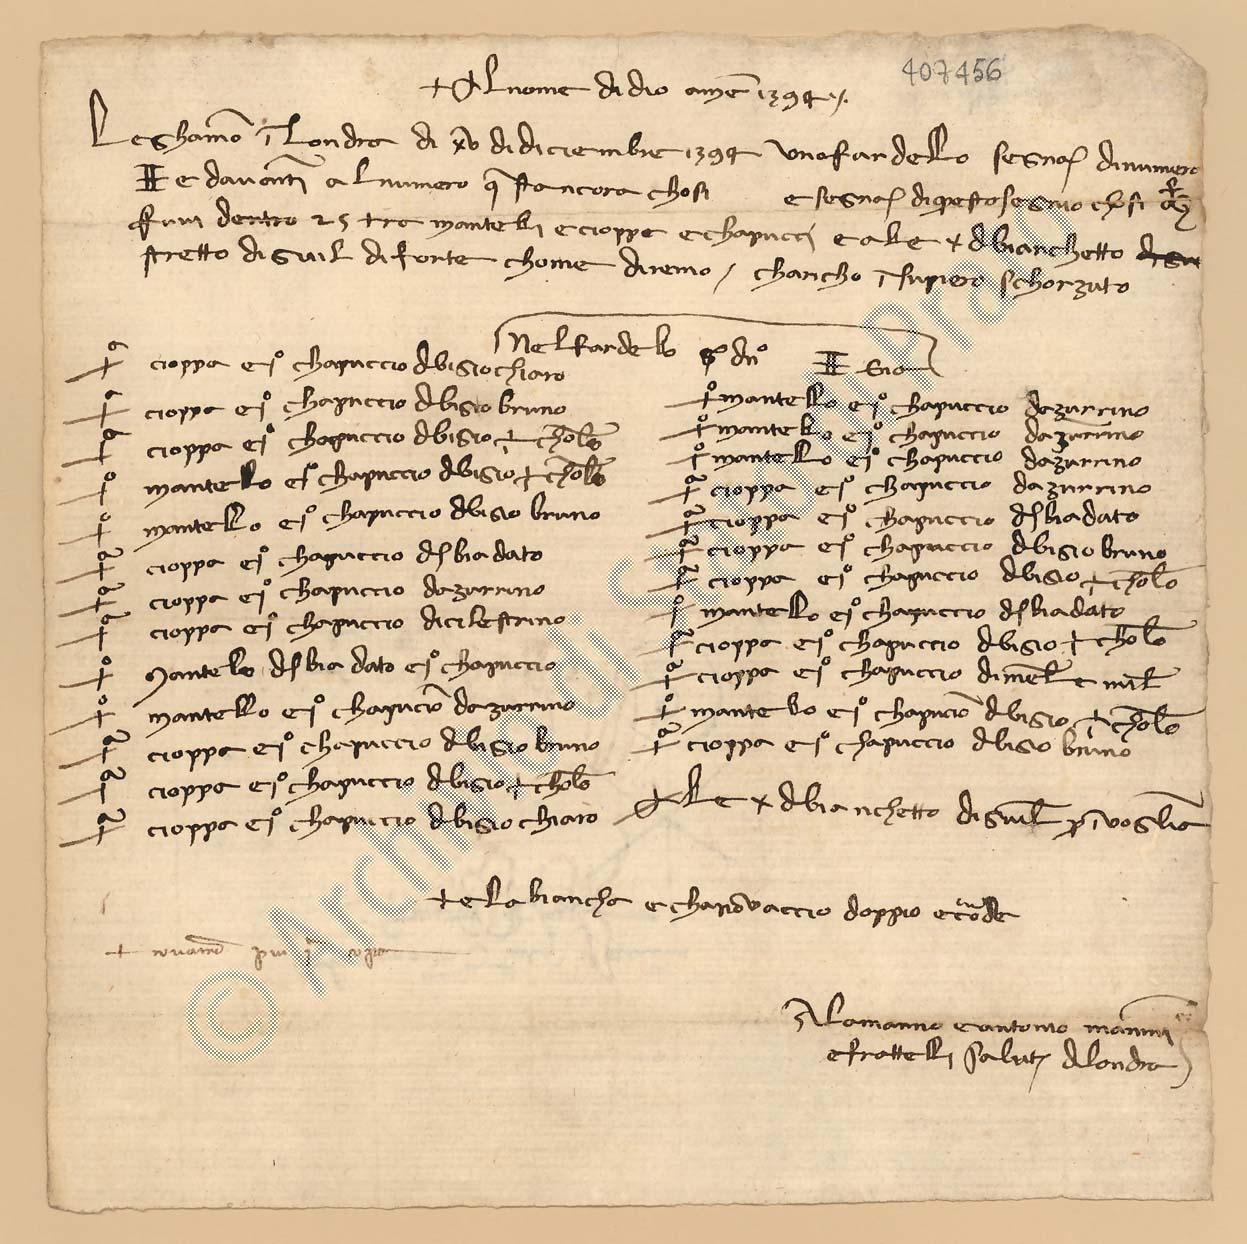 407456
+ Al nome di dio amē 1394
Leghamō ī Londra di xv di diciembre 1394 uno fardello segnaƷ di numero
II e davantī al numero q̄sta ancora chosi e segnaƷ di questo segnio chosi
fuvi dentro 25 tra mantelli e cioppe e chapucci e ale x d bianchetto
stretto di guil di forte chome diremo / charicho ī su piero schorzuto
Nel fardello dn° II sia
1ª cioppa e 1° chapuccio d bigio chiaro
1ª cioppa e 1° chapuccio d bigio bruno
1ª cioppa e 1° chapuccio d bigio + cholō
1° mantello e 1° chapuccio d bigio + cholō
1° mantello e 1° chapuccio d bigio bruno
1ª cioppa e 1° chapuccio di sbiadato
1ª cioppa e 1° chapuccio dazurrino
1ª cioppa e 1° chapuccio di cilestrino
1° Mantello di sbiadato e 1° chapuccio
1° mantello e 1° chapucīo dazurrino
1ª cioppa e 1° chapuccio d bigio bruno
1ª cioppa e 1° chapuccio d bigio + cholō
1ª cioppa e 1° chapuccio d bigio chiaro
1° mantello e 1° chapuccio dazurrino
1° mantello e 1° chapuccio dazurrino
1° mantello e 1° chapuccio dazurrino
1ª cioppa e 1° chapuccio dazurrino
1ª cioppa e 1° chapuccio di sbiadato
1ª cioppa e 1° chapuccio d bigio bruno
1ª cioppa e 1° chapuccio d bigio + cholō
1° mantello e 1° chapuccio di sbiadato
1ª cioppa e 1° chapuccio d bigio + cholō
1ª cioppa e 1° chapuccio di
1° mantello e 1° chapucīo d bigio + cholō
1ª cioppa e 1° chapuccio d bigio bruno
Ale x d bianchetto di guil p īvoglia
tela biancha e chanovaccio doppio e corde
Alamanno e antonio mannini
e frattelli salutƷ di londra
© Archivio di Stato di Prato